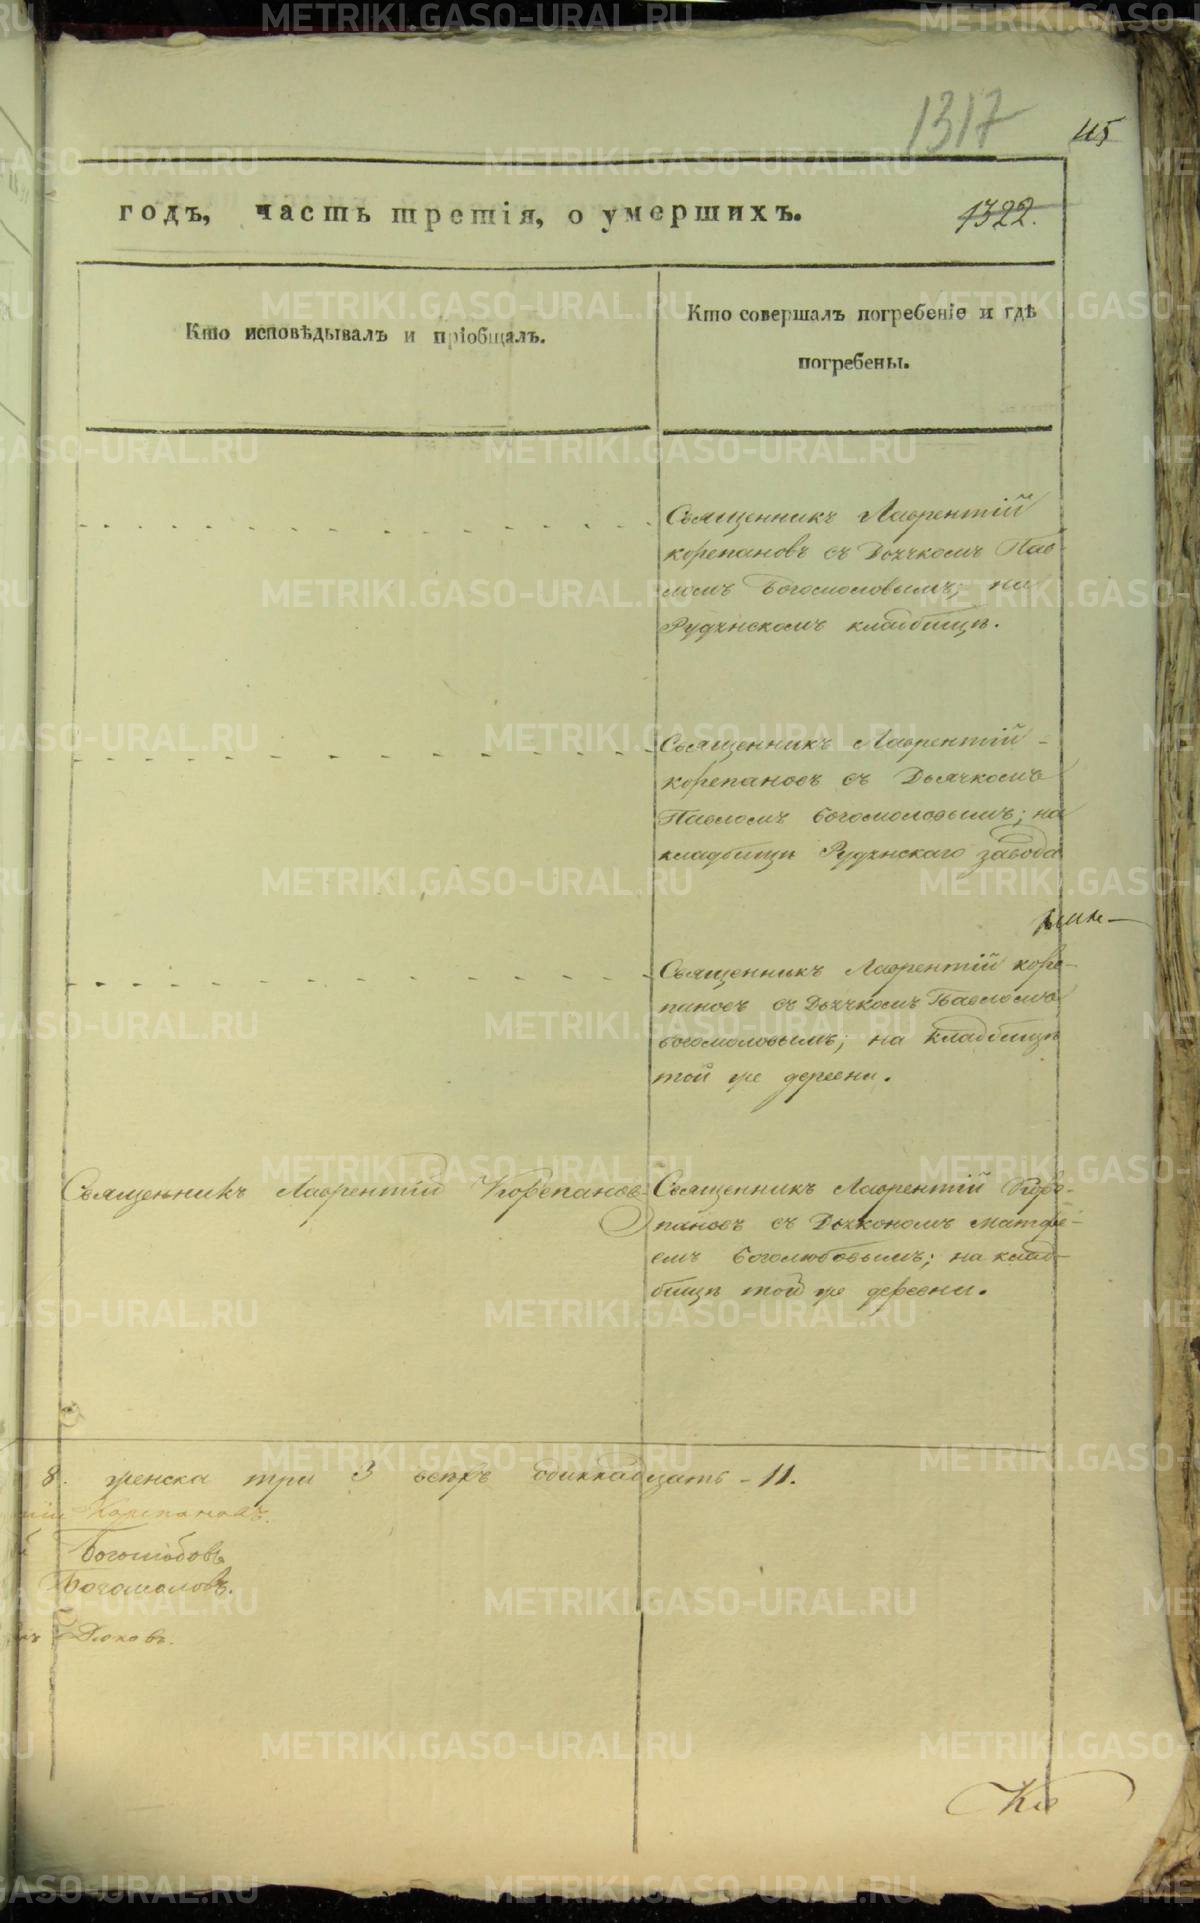 1317
115
годъ, часть третія, о умершихъ.
1322.
Кто исповѣдывалъ и пріобщалъ.
Кто совершалъ погребеніе и гдѣ
погребены.
Священникъ Лаврентій
Корепановъ съ Дьячкомъ Пав-
ломъ Богомоловымъ; на
Руднскомъ кладбищѣ.
Священникъ Лаврентій -
Корепановъ съ Дьячкомъ
Павломъ Богомоловымъ; на
кладбищѣ Руднскаго завода
Священникъ Лаврентій Коре-
пановъ съ Дьячкомъ Павломъ
Богомоловымъ; на кладбищѣ
той же деревни.
Священникъ Лаврентій Корепановъ
Священникъ Лаврентій Коре-
пановъ съ Дьякономъ Матфе-
емъ Боголюбовымъ; на клад-
бищѣ той же деревни.
8. женска три 3 всѣхъ одиннадцать - 11.
Корепановъ.
Боголюбовъ
Богомоловъ.
METRIKI.GASO-URAL.RU